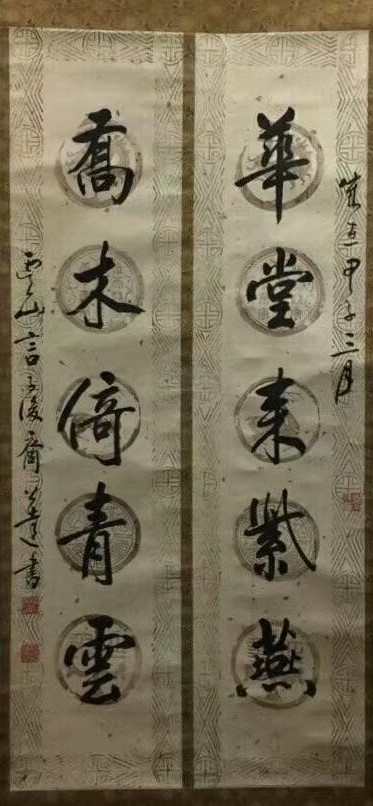 歲在甲子三月
華堂來紫燕
喬木倚青雲
虞山言子後裔公達書